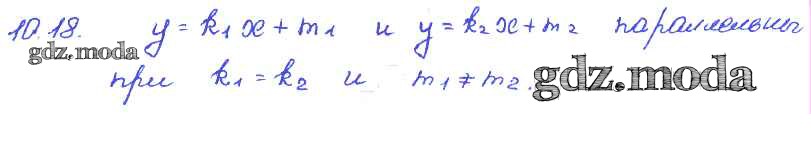 10.18. y = k₁x + m₁ и y = k₂x + m₂ параллельны
gdz.moda
при k₁ = k₂ и m₁ ≠ m₂. gdz.moda